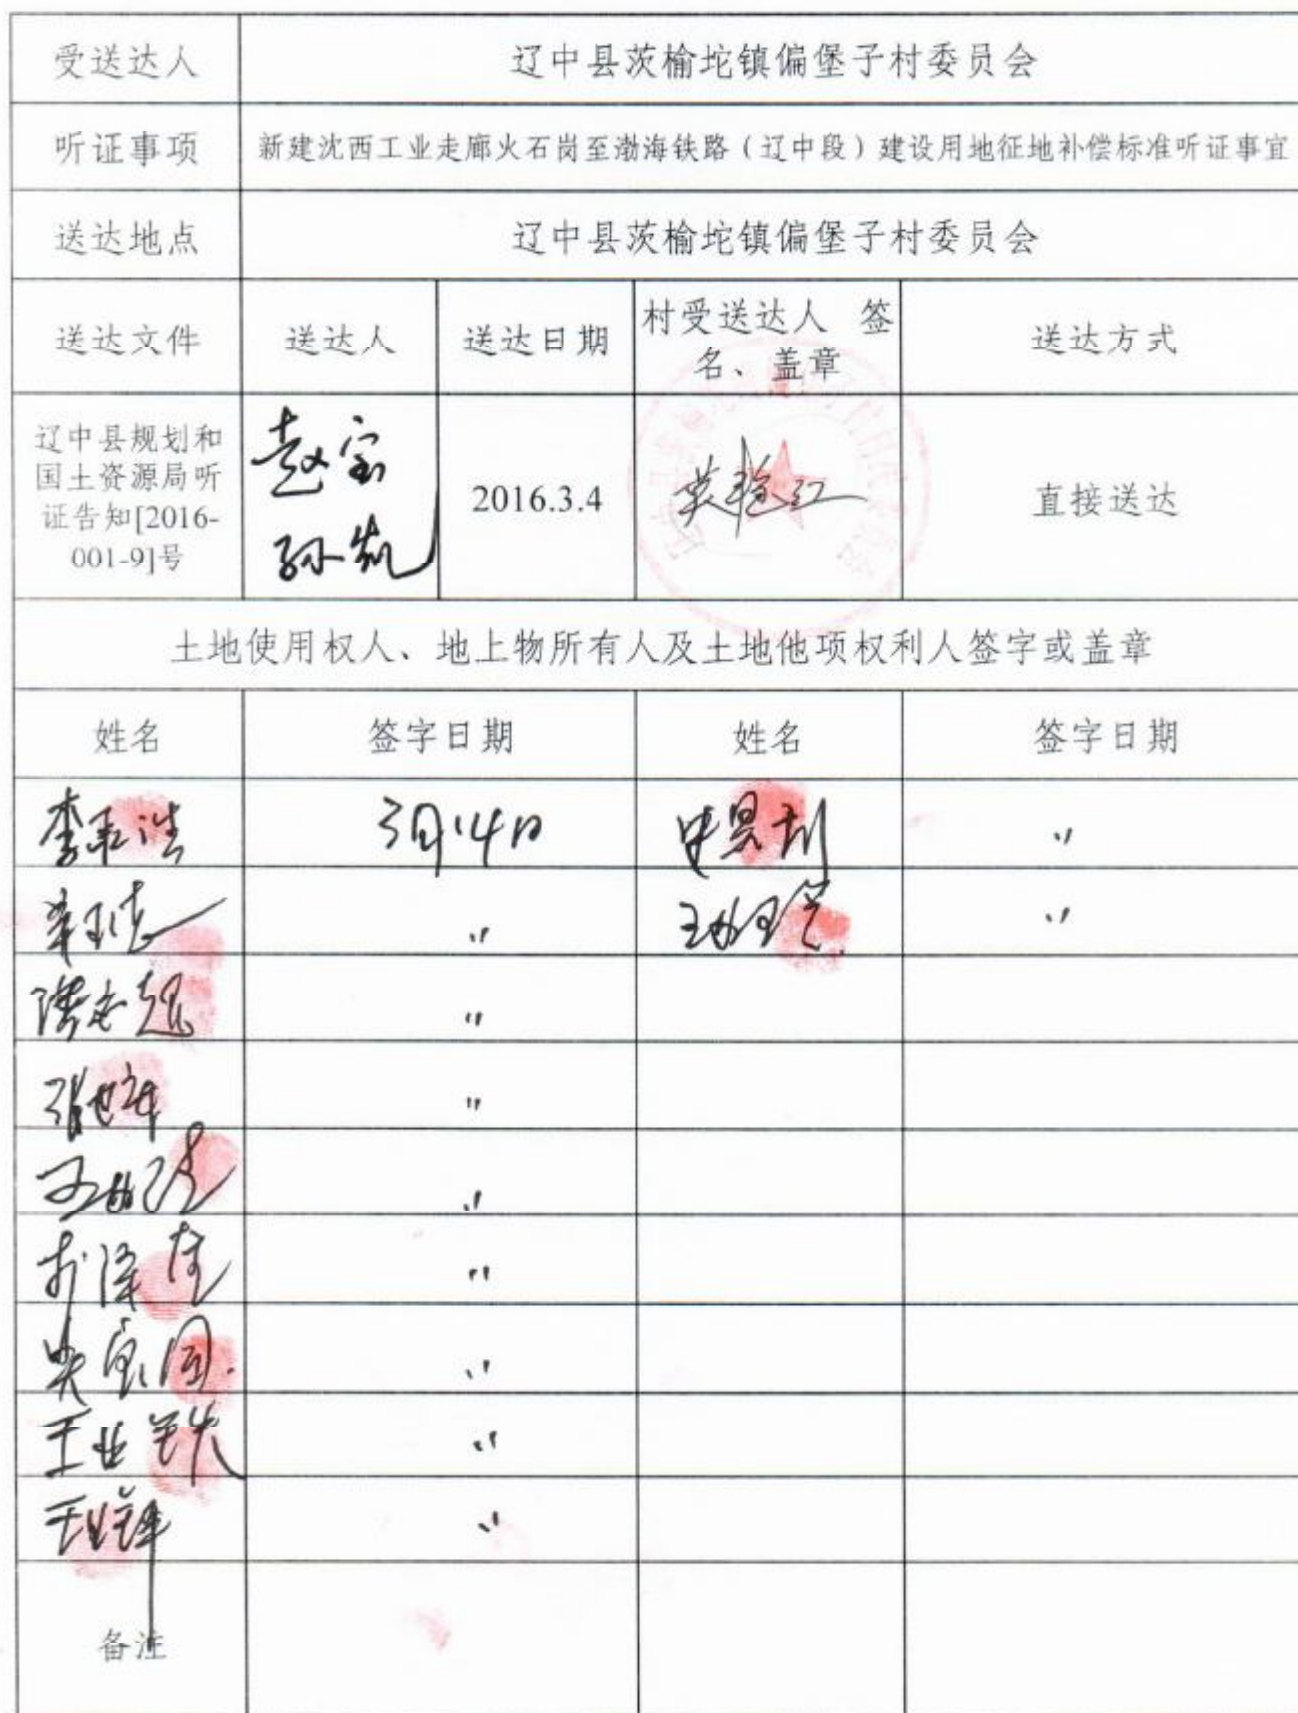 受送达人 辽中县茨榆坨镇偏堡子村委员会
听证事项 新建沈西工业走廊火石岗至渤海铁路（辽中段）建设用地征地补偿标准听证事宜
送达地点 辽中县茨榆坨镇偏堡子村委员会
送达文件 送达人 送达日期 村受送达人 签
名、盖章 送达方式
辽中县规划和
国土资源局听
证告知[2016-
001-9]号
赵宝
孙凯
2016.3.4
直接送达
土地使用权人、地上物所有人及土地他项权利人签字或盖章
姓名 签字日期 姓名 签字日期
3月14日 〃
〃 〃
〃
〃
〃
〃
〃
〃
〃
备注